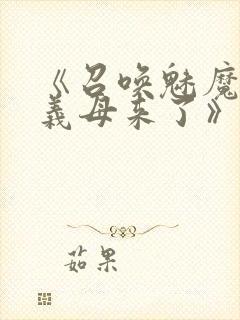 《召唤魅魔
义母来了》
茹果